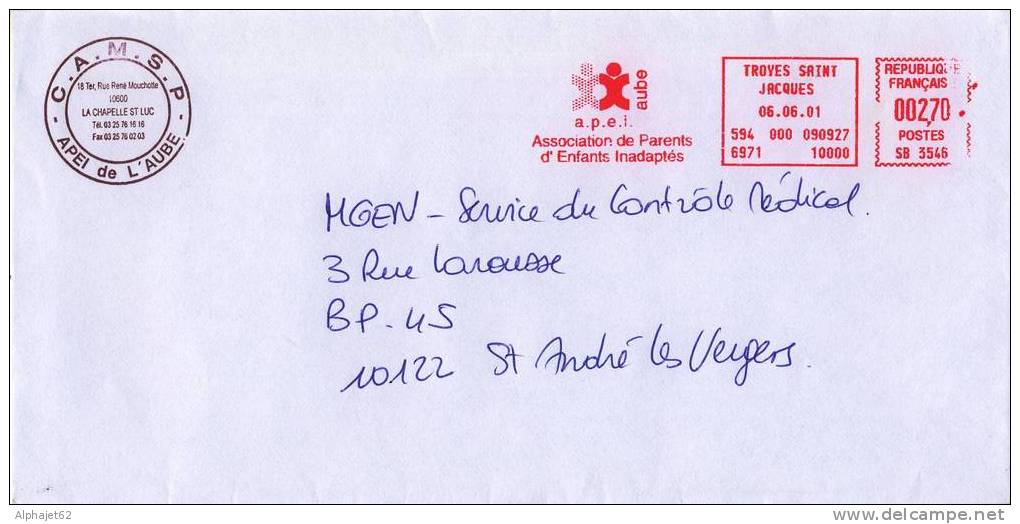 C.A.M.S.P
18 Ter, Rue René Mouchotte
10600
LA CHAPELLE ST LUC
Tél. 03 25 76 16 16
Fax 03 25 76 02 03
- APEI de L'AUBE -
a.p.e.i.
aube
Association de Parents
d' Enfants Inadaptés
TROYES SAINT
JACQUES
06.06.01
594 000 090927
6971 10000
REPUBLIQUE
FRANÇAIS
002,70
POSTES
SB 3546
MGEN - Service du Contrôle Médical.
3 Rue Larousse
BP. 45
10122 St André les Vergers.
Alphajet62
www.delcampe.net